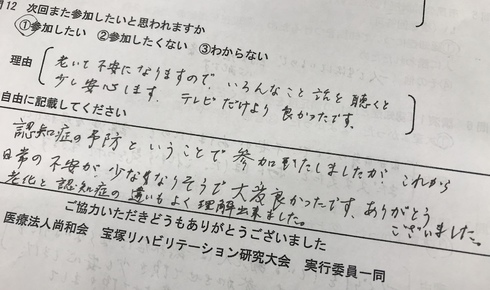 12 次回また参加したいと思われますか
①参加したい ②参加したくない ③わからない
理由
老いて不安になりますので、いろんなこと話を聴くと
少し安心します。テレビだけより良かったです。
自由に記載してください
認知症の予防ということで参加致しましたが、これから
日常の不安が少なくなりそうで大変良かったです、ありがとう
ございました。
老化と認知症の違いもよく理解出来ました。
ご協力いただきどうもありがとうございました
医療法人尚和会 宝塚リハビリテーション研究大会 実行委員一同